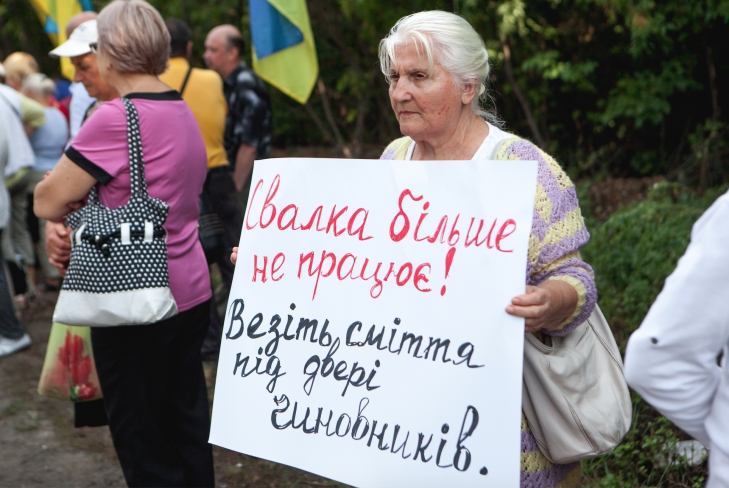 Свалка більше
не працює!
Везіть сміття
під двері
чиновників.